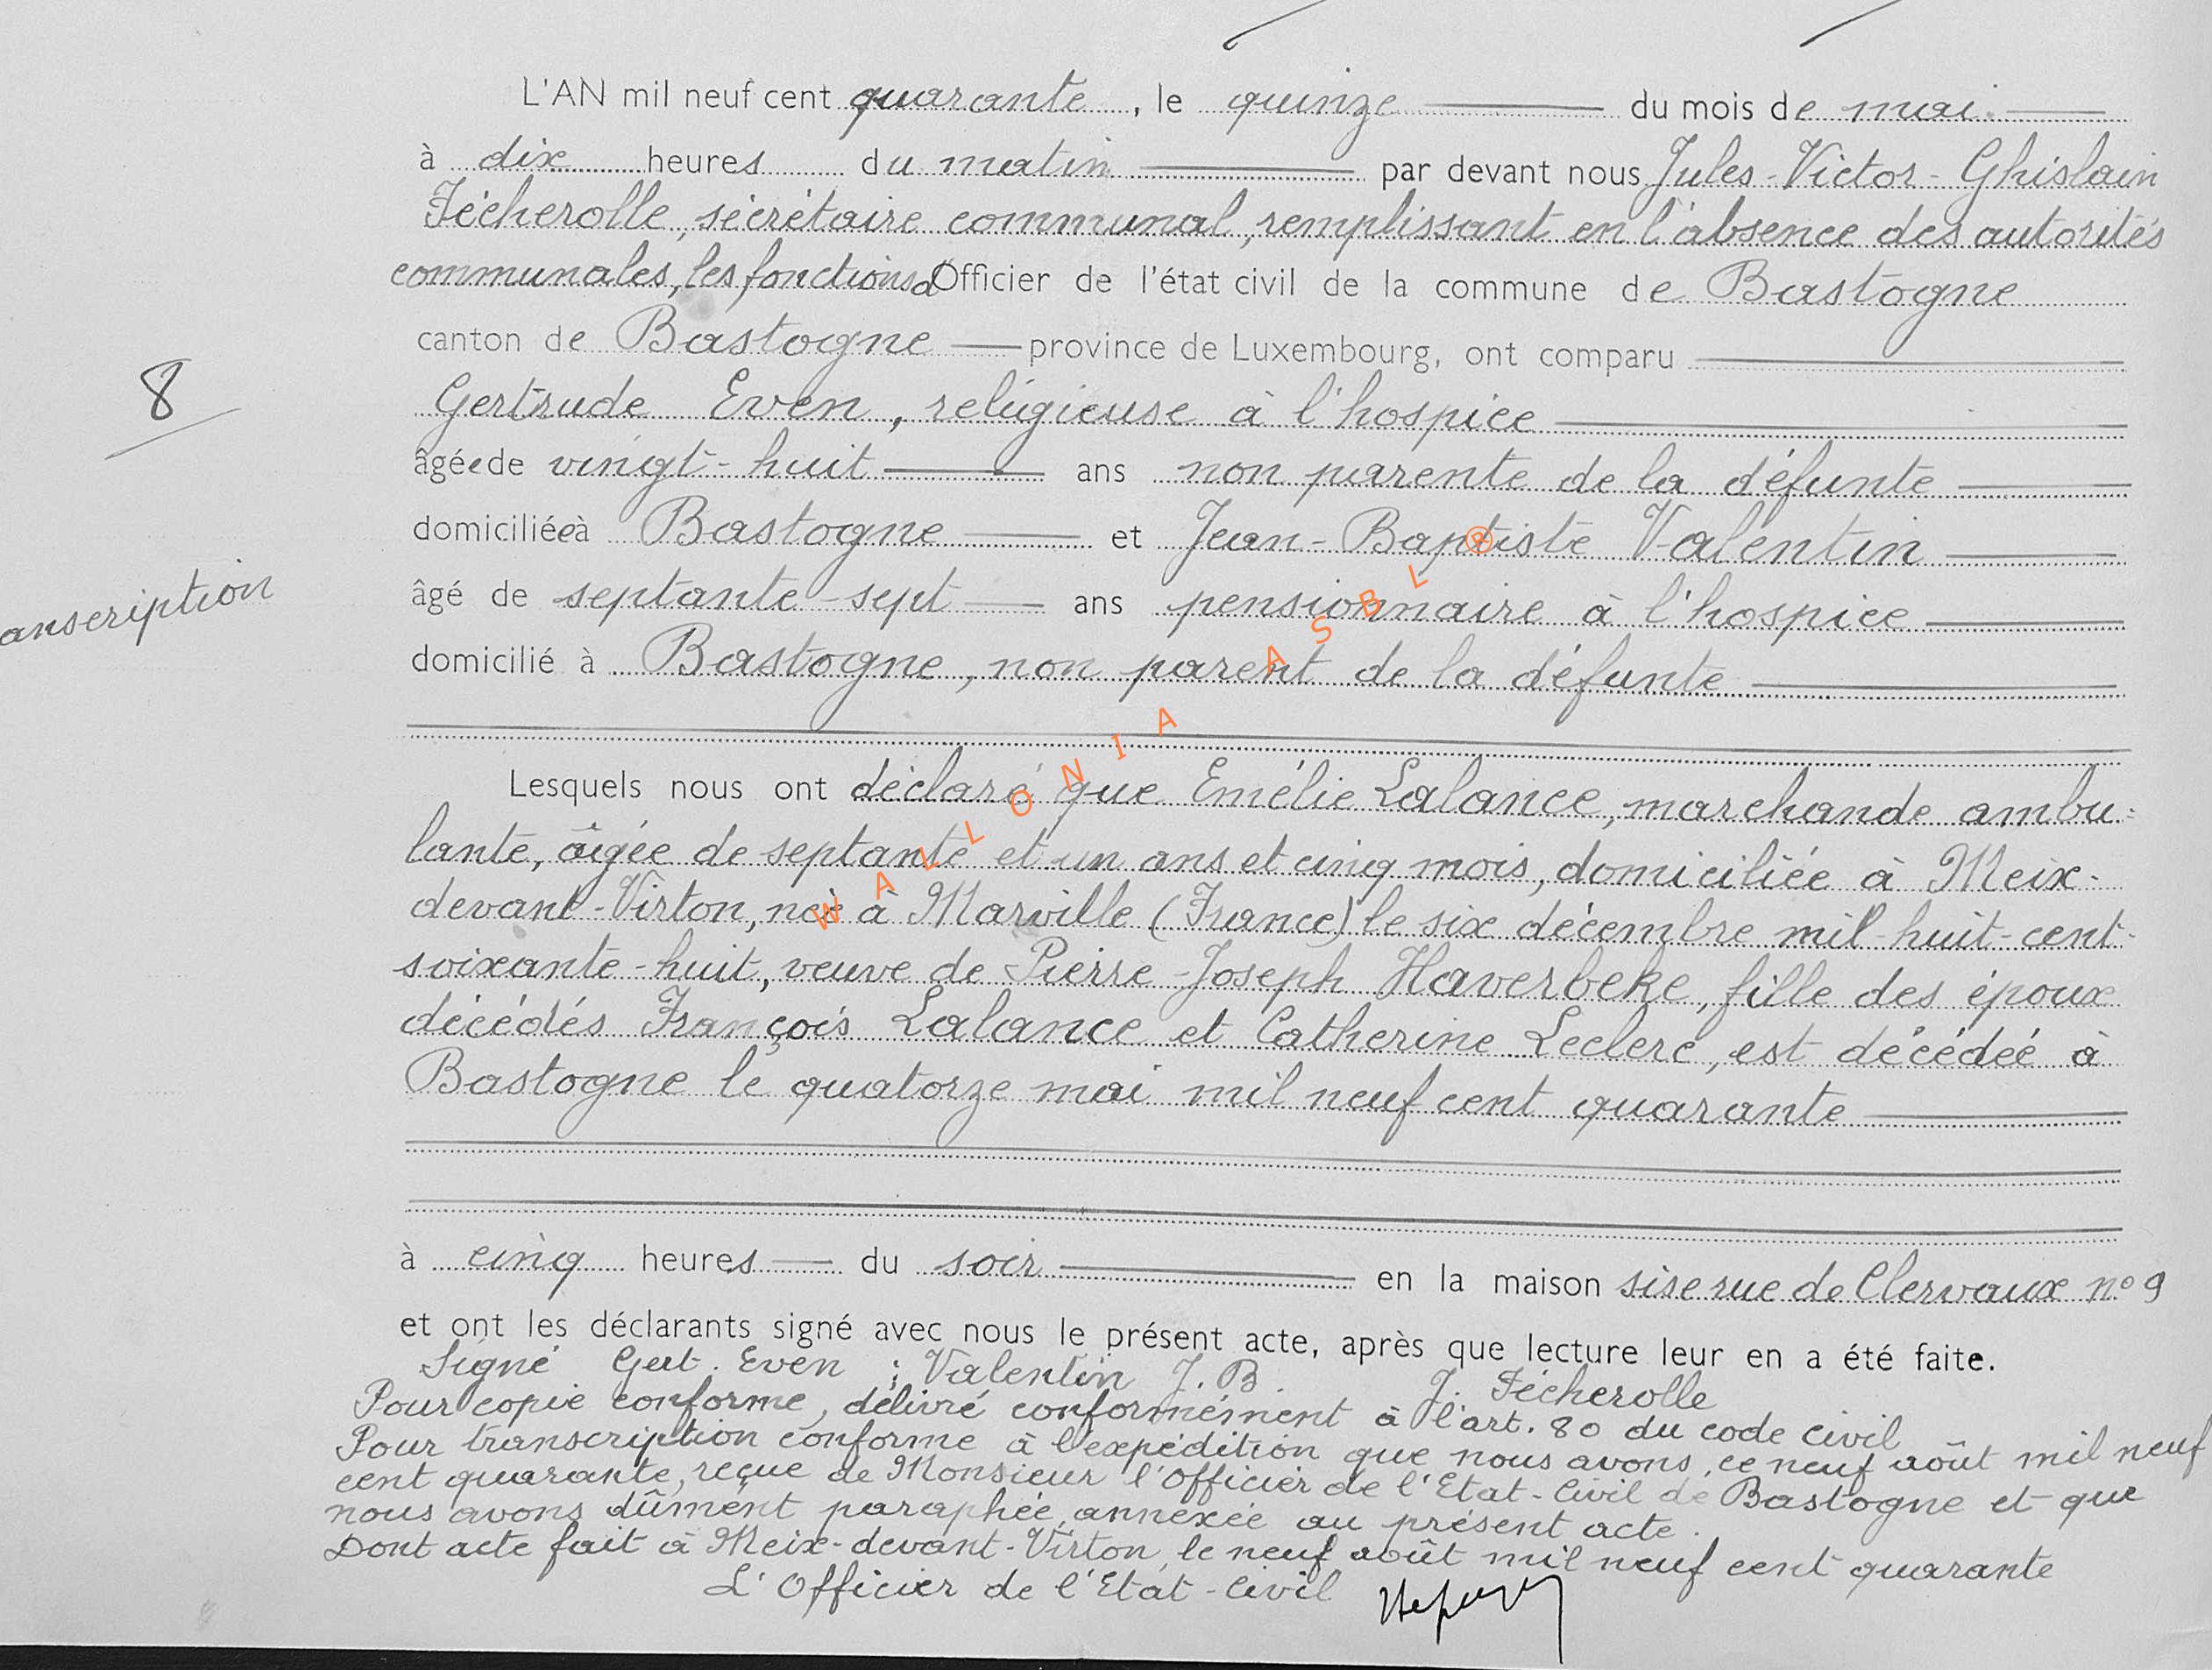 L'AN mil neuf cent quarante, le quinze du mois de mai
à dix heures du matin par devant nous Jules-Victor-Ghislain
Fécherolle, sécrétaire communal, remplissant en l'absence des autorités
communales, les fonctions d'Officier de l'état civil de la commune de Bastogne
canton de Bastogne province de Luxembourg, ont comparu
8
Gertrude Even, religieuse à l'hospice
âgée de vingt-huit ans non parente de la défunte
domiciliée à Bastogne et Jean-Baptiste Valentin
anscription
âgé de septante-sept ans pensionnaire à l'hospice
domicilié à Bastogne, non parent de la défunte
Lesquels nous ont déclaré que Emélie Lalance, marchande ambu=
lante, âgée de septante et un ans et cinq mois, domiciliée à Meix-
devant-Virton, née à Marville (France) le six décembre mil-huit-cent-
soixante-huit, veuve de Pierre-Joseph Haverbeke, fille des époux
décédés François Lalance et Catherine Leclerc, est décédée à
Bastogne le quatorze mai mil neuf cent quarante
à cinq heures du soir en la maison sise rue de Clervaux n° 9
et ont les déclarants signé avec nous le présent acte, après que lecture leur en a été faite.
Signé Gert. Even ; Valentin J.B. J. Fécherolle
Pour copie conforme, délivré conformément à l'art. 80 du code civil
Pour transcription conforme à l'expédition que nous avons, ce neuf août mil neuf
cent quarante, reçue de Monsieur l'Officier de l'Etat-Civil de Bastogne et que
nous avons dûment paraphée, annexée au présent acte.
Dont acte fait à Meix-devant-Virton, le neuf août mil neuf cent quarante
L'Officier de l'Etat-Civil
WALLONIA ASBL ®